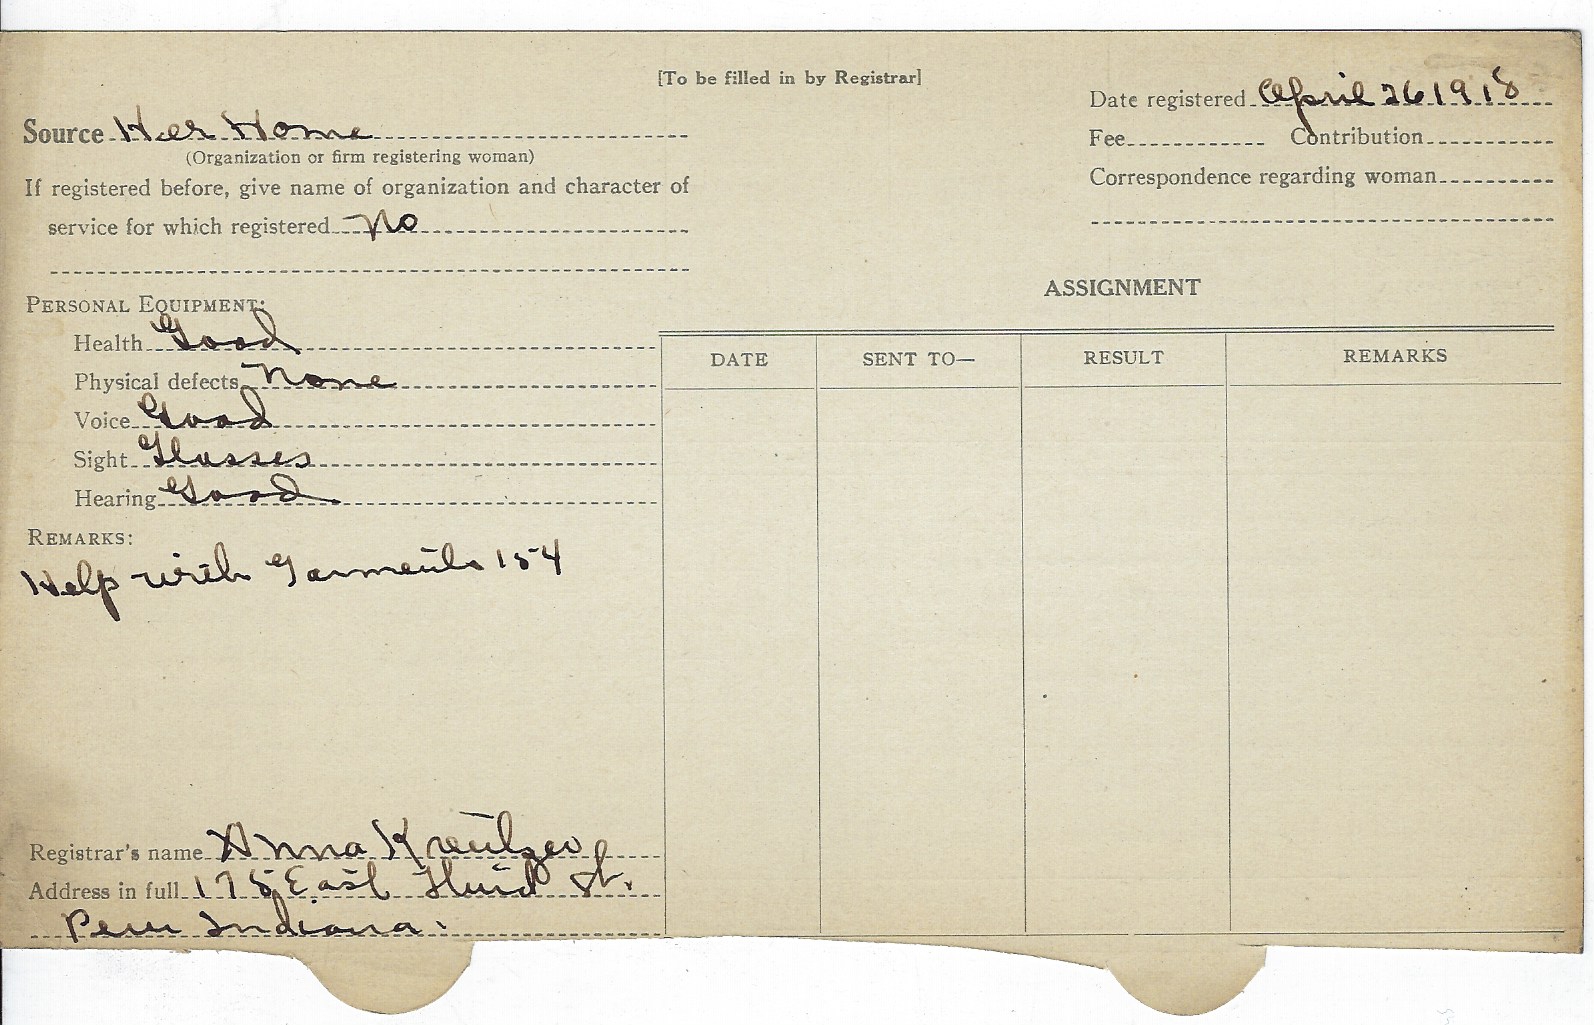 [To be filled in by Registrar]
Date registered April 26 1918
Source Her Home
(Organization or firm registering woman)
Fee Contribution
If registered before, give name of organization and character of
Correspondence regarding woman
service for which registered No
PERSONAL EQUIPMENT:
ASSIGNMENT
Health Good
DATE SENT TO— RESULT REMARKS
Physical defects None
Voice Good
Sight Glasses
Hearing Good
REMARKS:
Help with Garments 154
Registrar's name Anna Kreutzer
Address in full 178 East Third St.
Peru Indiana.